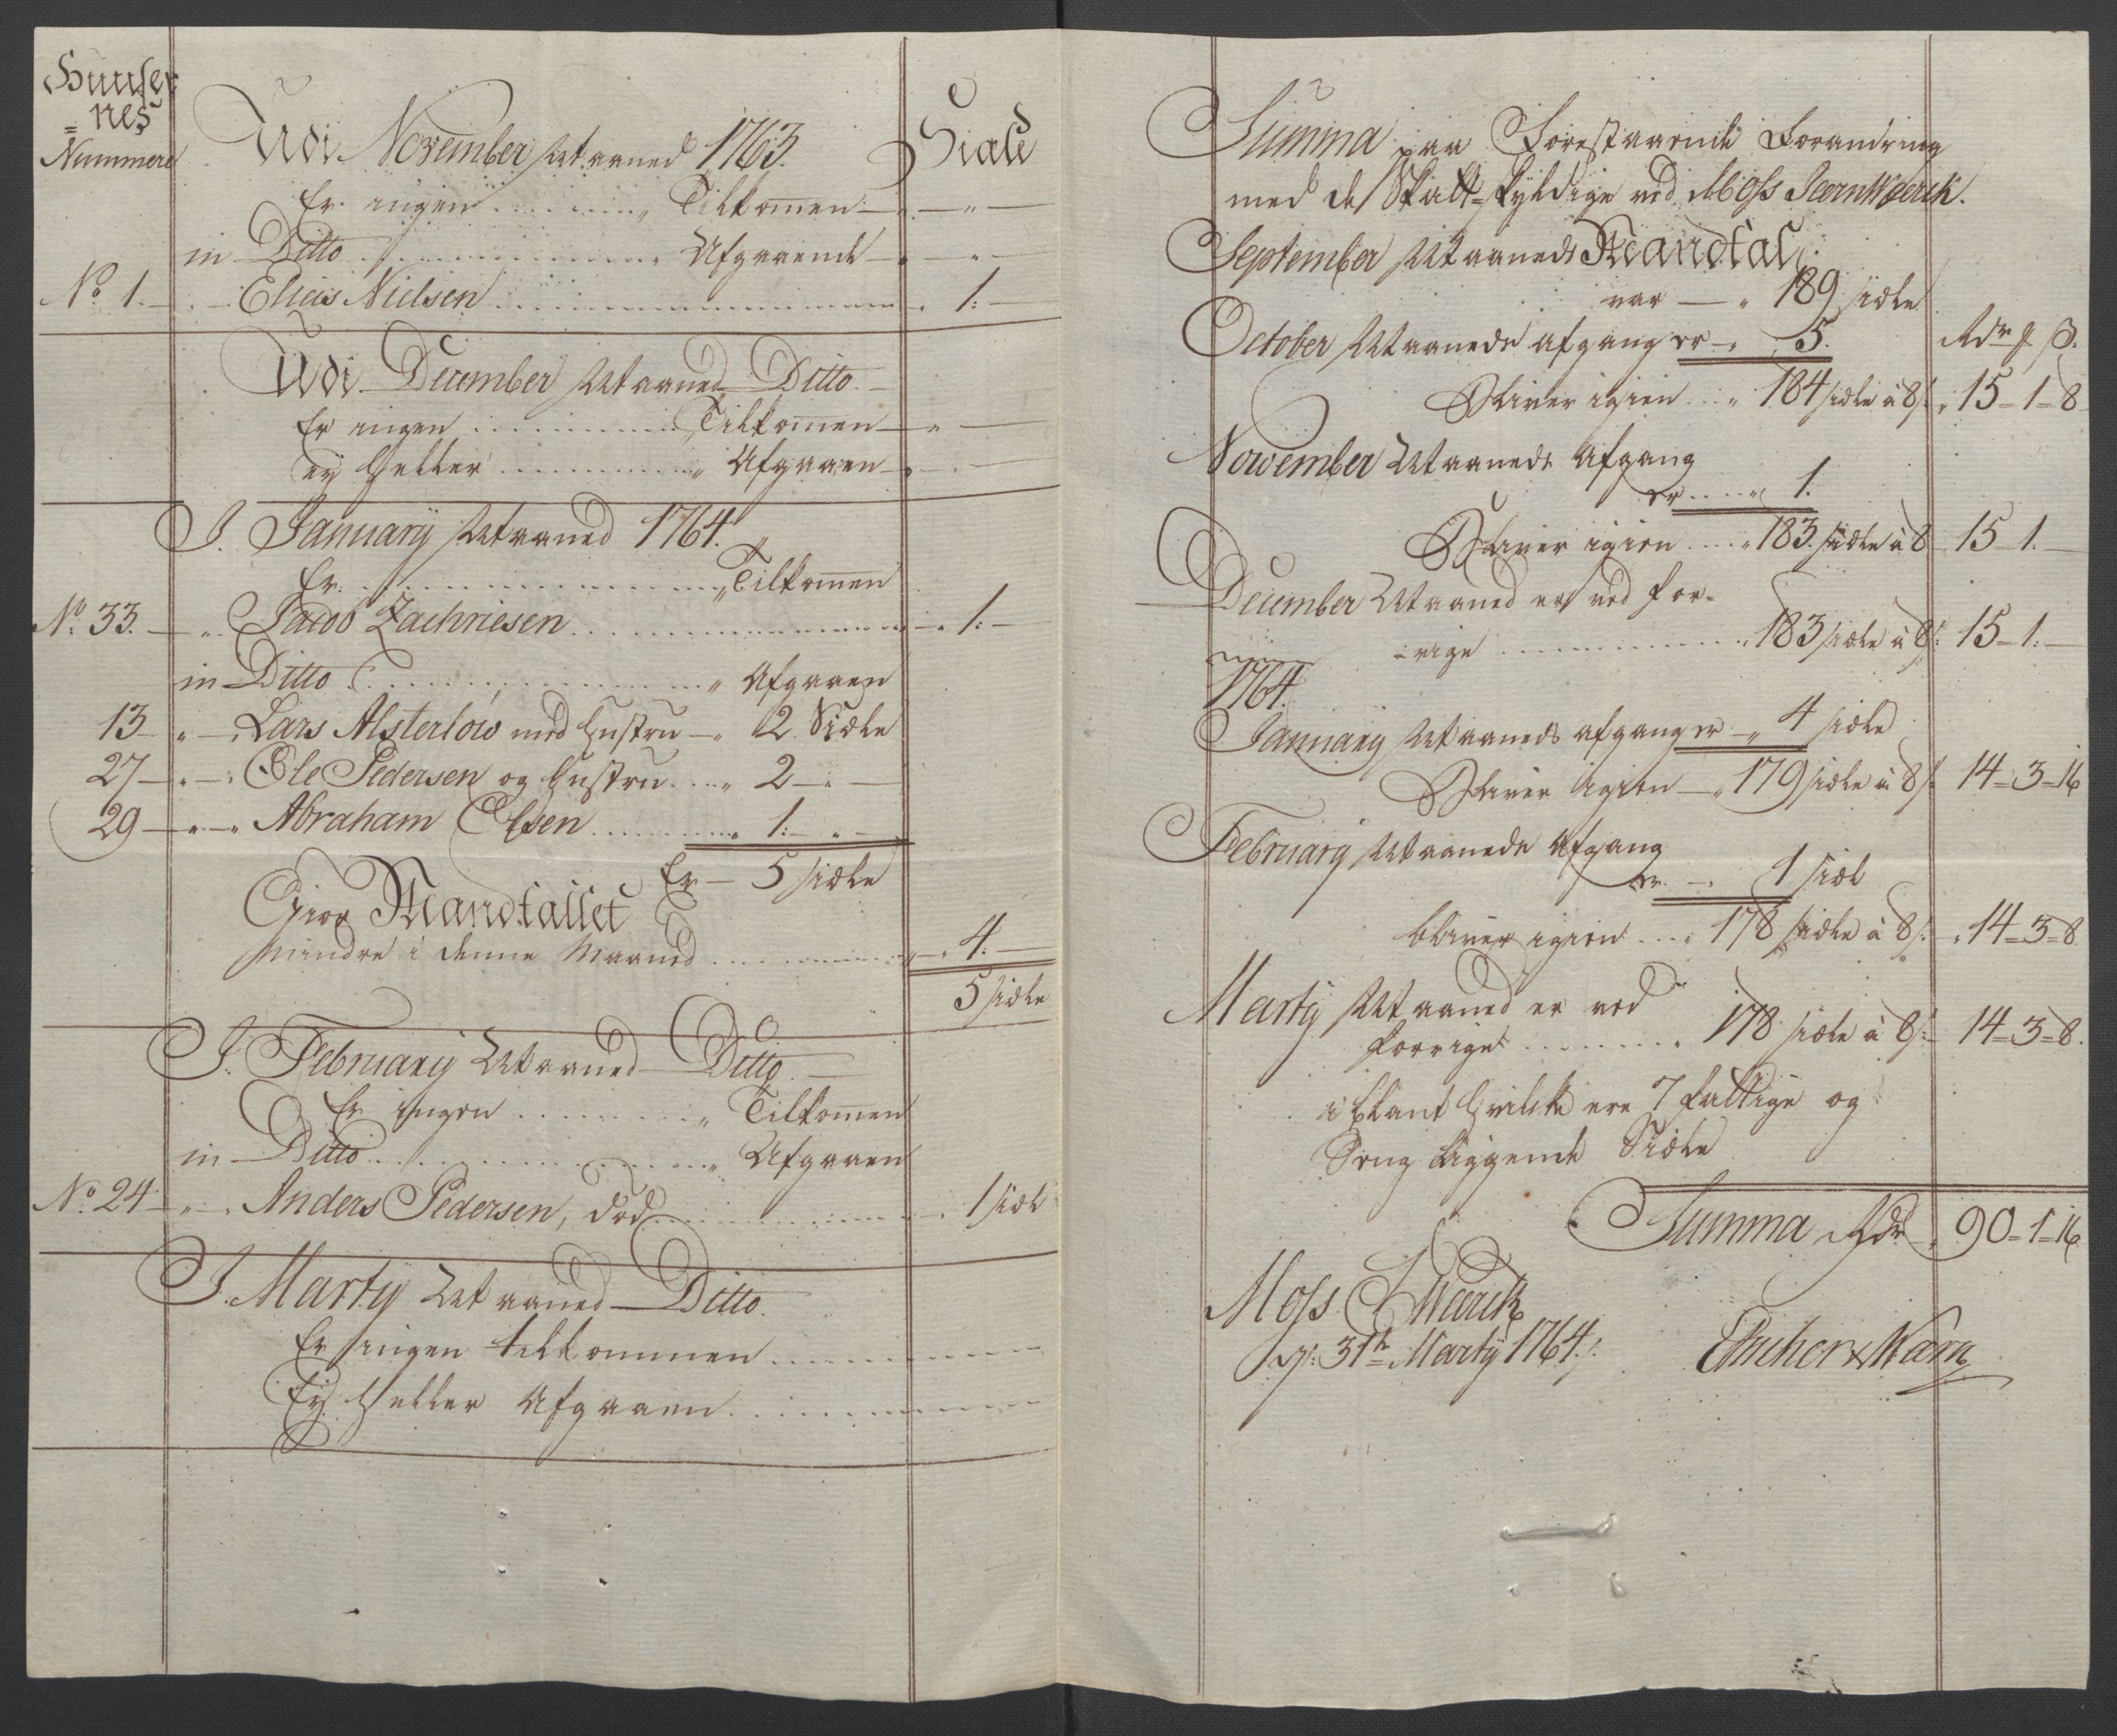 Huuser
nes
= Nummere
Udi November Maaned 1763. Siæle
Er ingen ........ " Tilkomen — " —
in Ditto ........ " Afgaaende — " —
No 1. — Elias Nielsen ........ 1: —
Udi December Maaned Ditto. —
Er ingen ........ Tilkomen — " —
ey heller ........ " Afgaaen — " —
I. January Maaned 1764.
Er. ........ " Tilkomen
No 33. — " Jacob Zachriesen ........ 1: —
in Ditto ........ " Afgaaen
13 — " — Lars Alsterlow med hustru — " 2 Siæle
27 — " — Ole Pedersen og hustru .... " 2 — " —
29 — " — Abraham Olsen ........ " 1: — " —
Er — 5 siæle
Giør Mandtallet
mindre i denne Maaned ........ " 4. —
5 siæle
I. February Maaned Ditto. —
Er ingen ........ " Tilkomen
in Ditto ........ " Afgaaen
No. 24 — " — Anders Pedersen, død ........ 1 siæl
I. Marty Maaned — Ditto.
Er ingen tilkommen ........
Ey heller Afgaaen ........
Summa paa Forestaaende Forandring
med de Skatt-skyldige ved Moss Jernwærck.
September Maaneds Mandtal
var — " 189 siæle
October Maaneds afgang er — " 5. Rdr ß.
Bliver igien ... " 184 siæle a 8 ß. " 15 - 1 - 8
November Maaneds Afgang
er .... " 1.
Bliver igien .... " 183. siæle a 8 15 - 1. —
December Maaned er ved for-
rige ........ 183 siæle a 8 ß: 15 - 1: —
1764.
January Maaneds afgang er — " 4 siæle
Bliver igien — " 179 siæle a 8 ß. 14 = 3 - 16
February Maaneds Afgang
er. — " 1 siæl
bliver igien .... " 178 siæle a 8 ß: — " 14 = 3 = 8
Marty Maaned er ved
forrige ........ " 178 siæle a 8 ß: 14 = 3 = 8.
iblant hvilke ere 7 fattige og
Seng liggende Siæle
Summa Rdr " 90 = 1 = 16
Moss Werck
31te Marty 1764.